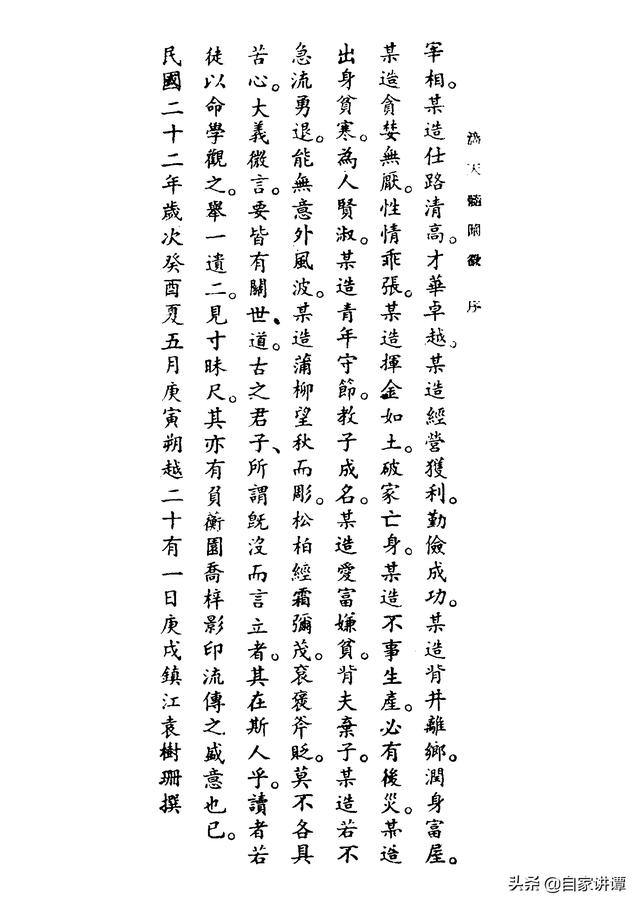 滴天髓闡微 序
宰相。某造仕路清高。才華卓越。某造經營獲利。勤儉成功。某造背井離鄉。潤身富屋。
某造貪婪無厭。性情乖張。某造揮金如土。破家亡身。某造不事生產。必有後災。某造
出身貧寒。為人賢淑。某造青年守節。教子成名。某造愛富嫌貧。背夫棄子。某造若不
急流勇退。能無意外風波。某造蒲柳望秋而彫。松柏經霜彌茂。袞褒斧貶。莫不各具
苦心。大義微言。要皆有關世、道。古之君子、所謂旣沒而言立者。其在斯人乎。讀者若
徒以命學觀之。舉一遺二。見寸昧尺。其亦有負蘅園喬梓影印流傳之盛意也已。
民國二十二年歲次癸酉夏五月庚寅朔越二十有一日庚戌鎮江袁樹珊撰
头条 @自家讲谭